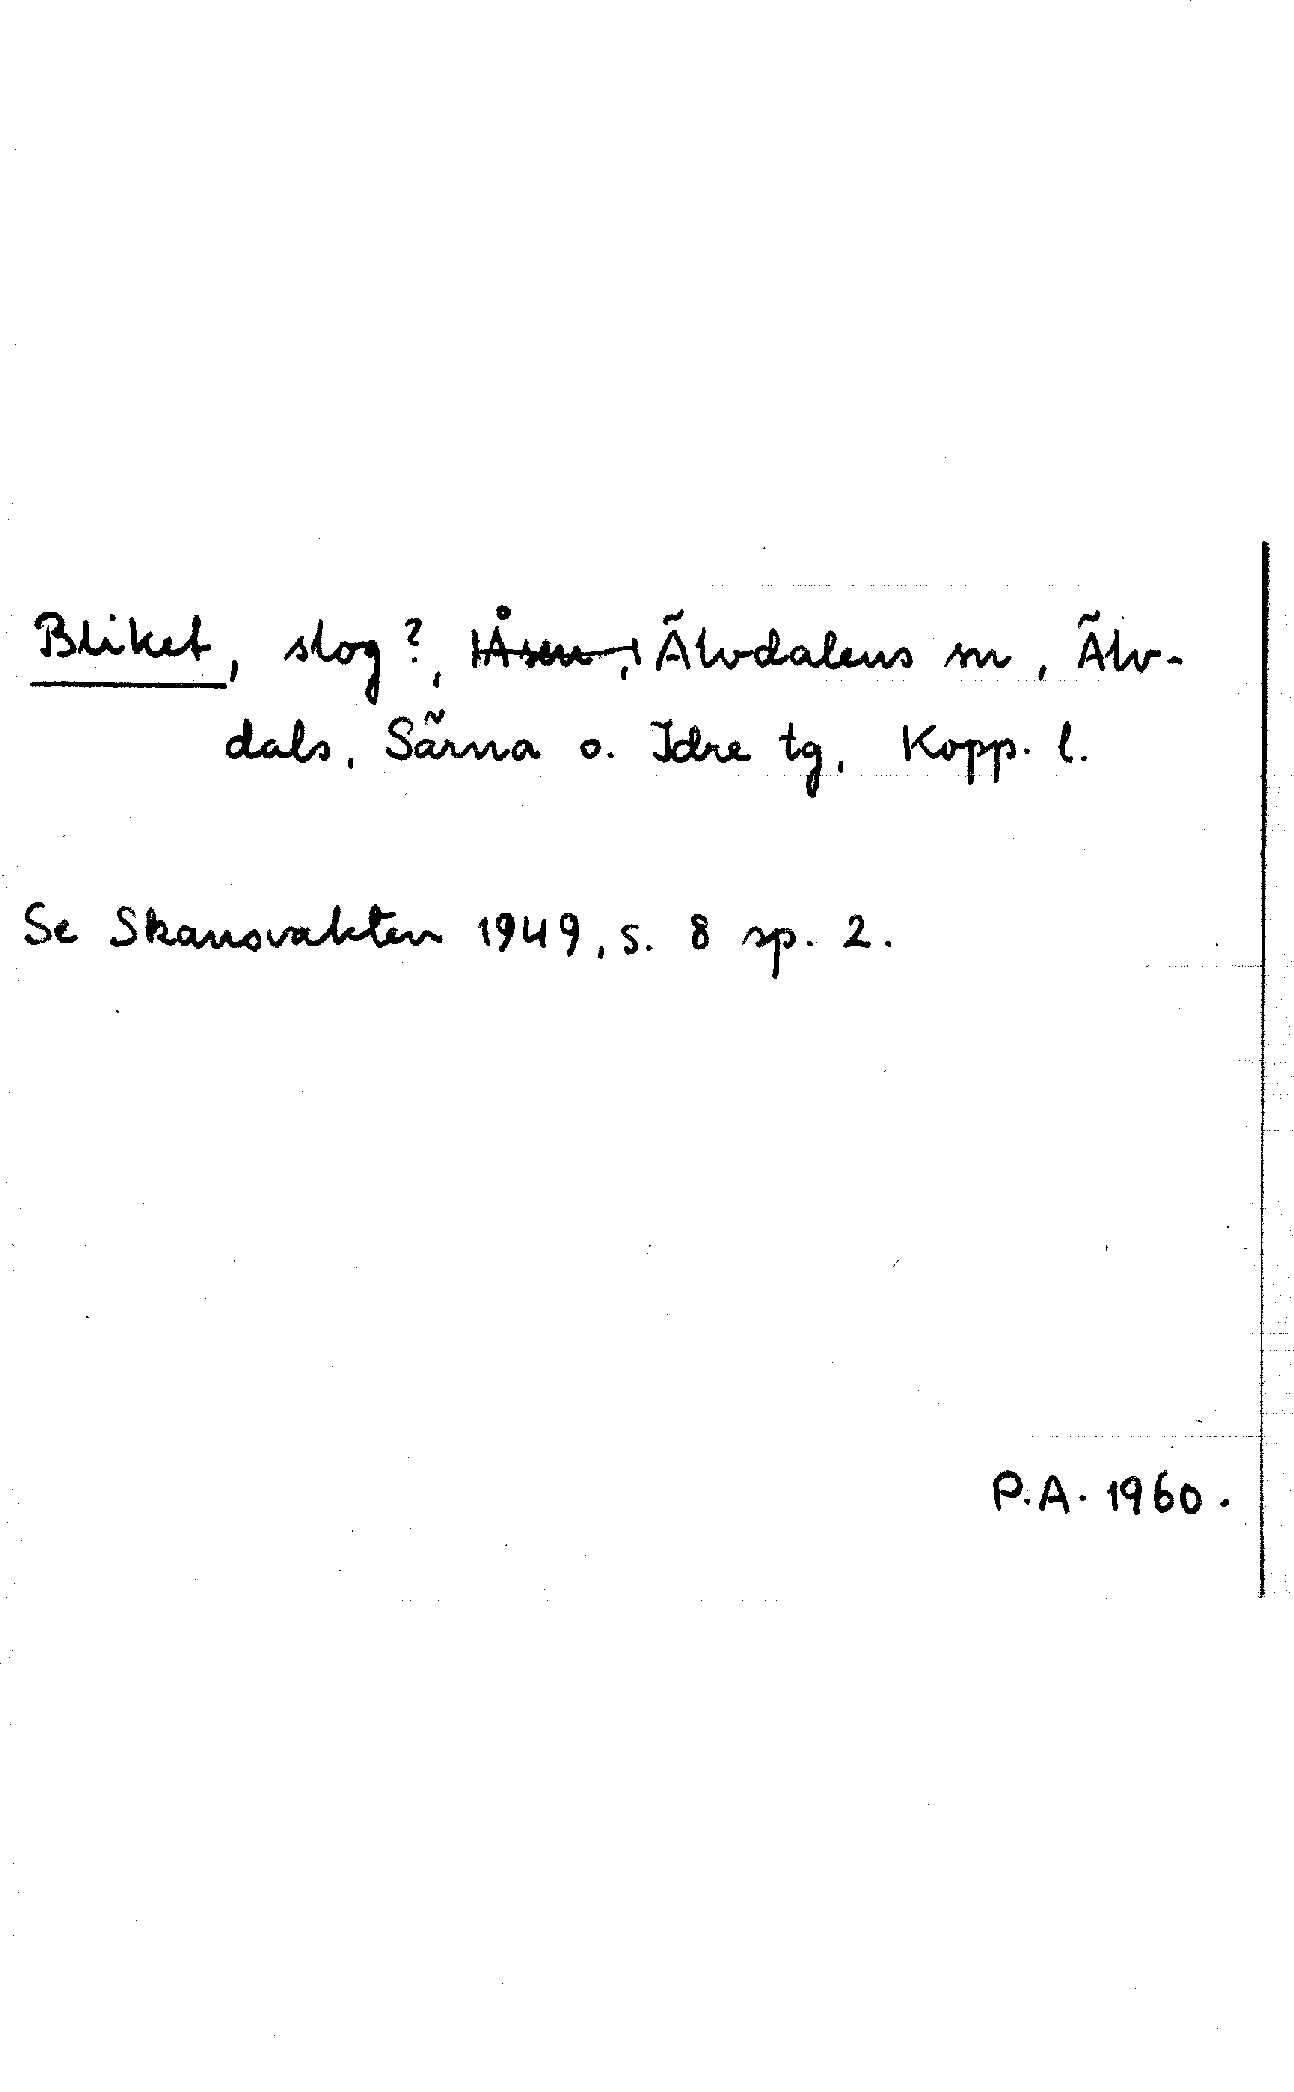 Bliket, slog?, Åsen, Älvdalens sn, Älv-
dals, Särna o. Idre tg, Kopp. l.
Se Skansvakten 1949, s. 8 sp. 2.
P.A. 1960.